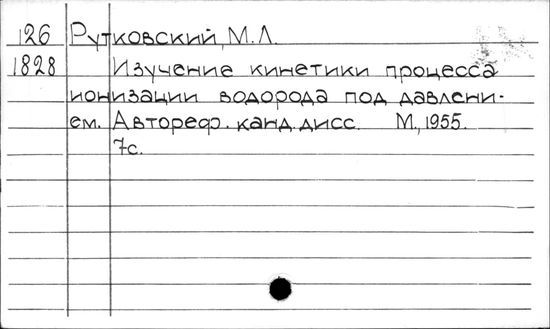 126 Рутковский, М.Л.
1828 Изучение кинетики процесса
ионизации водорода под давлени-
ем. Автореф. канд. дисс. М., 1955.
7с.